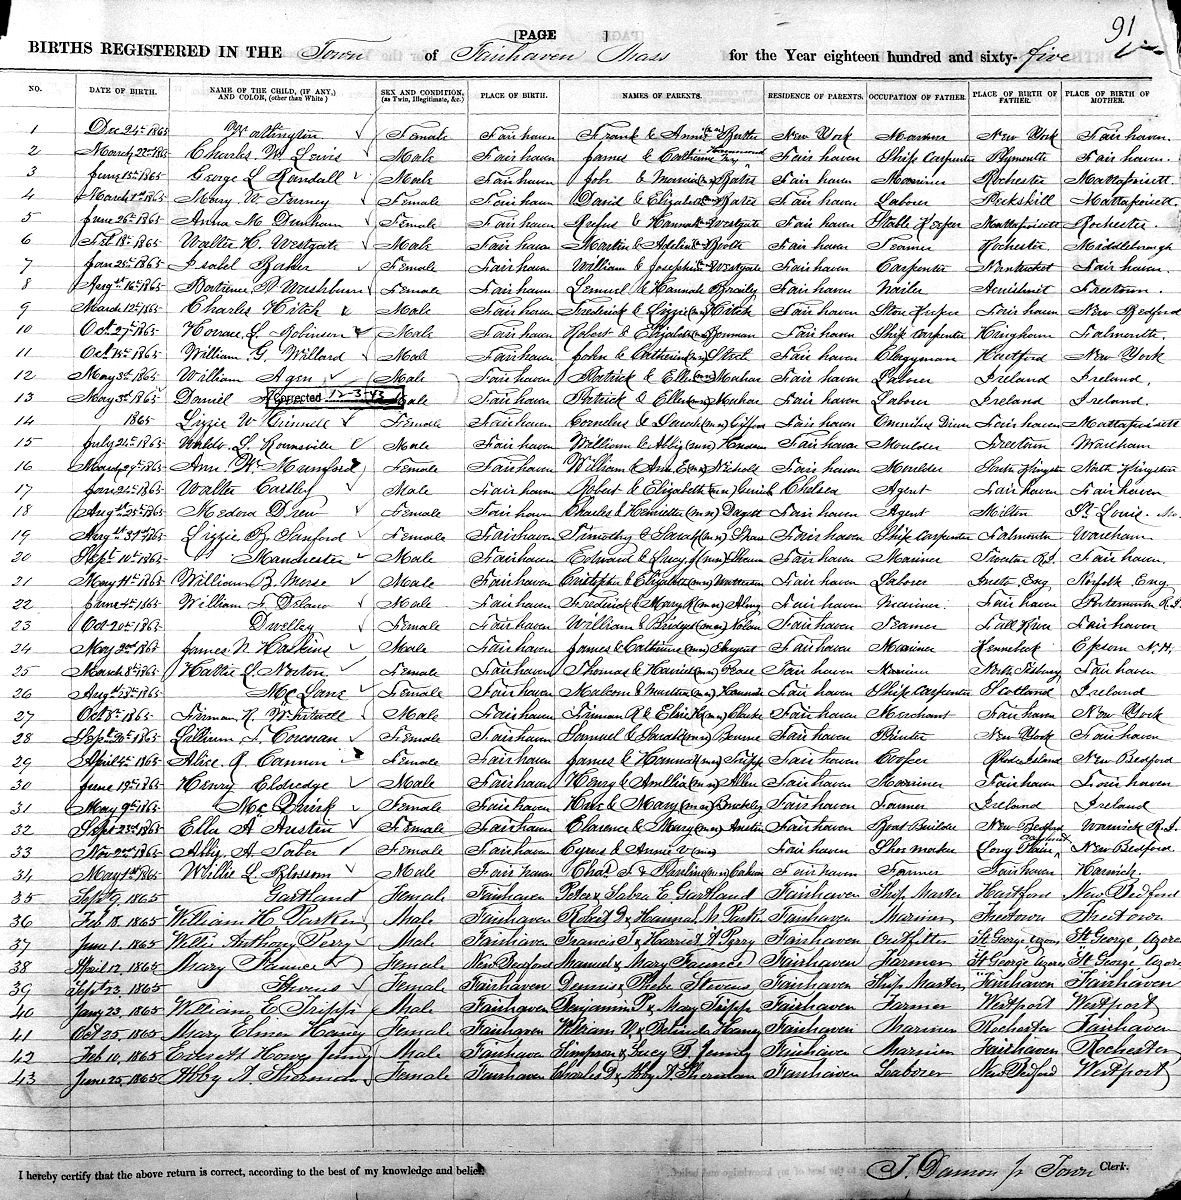 [PAGE ]
91
BIRTHS REGISTERED IN THE Town of Fairhaven Mass for the Year eighteen hundred and sixty-five
NO. DATE OF BIRTH. NAME OF THE CHILD, (IF ANY,) AND COLOR, (other than White) SEX AND CONDITION, (as Twin, Illegitimate, &c.) PLACE OF BIRTH. NAMES OF PARENTS. RESIDENCE OF PARENTS. OCCUPATION OF FATHER. PLACE OF BIRTH OF FATHER. PLACE OF BIRTH OF MOTHER.
1 Dec 24th 1865 Female Fairhaven Frank & Annie New York Mariner New York Fairhaven.
2 March 22nd 1865 Charles W. Lewis Male Fairhaven James & Catherine Hammond Fairhaven Ship Carpenter Plymouth Fairhaven.
3 June 15th 1865 George L Randall Male Fairhaven Fairhaven Mariner Rochester Mattapoisett.
4 March 1st 1865 Mary W. Female Fairhaven David & Elizabeth Fairhaven Laborer Peekskill Mattapoisett.
5 June 26th 1865 Anna M Dunham Female Fairhaven Rufus & Hannah Westgate Fairhaven Stable Keeper Mattapoisett Rochester.
6 Feb 18th 1865 Walter H. Westgate Male Fairhaven Martin & Adeline Fairhaven Teamer Rochester Middleborough
7 Jan 25th 1865 Isabel Baker Female Fairhaven William & Josephine Westgate Fairhaven Carpenter Nantucket Fairhaven.
8 Augst 16th 1865 Washburn Female Fairhaven Lemuel & Hannah Braily Fairhaven Acushnet Freetown.
9 March 12th 1865 Charles Hitch Male Fairhaven Frederick & Lizzie (mn) Hitch Fairhaven Store Keeper Fairhaven New Bedford
10 Oct 27th 1865 Horace L Robinson Male Fairhaven Robert & Elizabeth (mn) Fairhaven Ship Carpenter Hingham Falmouth.
11 Oct 15th 1865 William G. Willard Male Fairhaven John & Catherine (mn) Steele Fairhaven Clergyman Hartford New York
12 May 3rd 1865 William Agen Male Fairhaven Patrick & Ellen (mn) Mahar Fairhaven Laborer Ireland Ireland.
13 May 3rd 1865 Daniel Corrected 12-3-43 Male Fairhaven Patrick & Ellen (mn) Mahar Fairhaven Laborer Ireland Ireland.
14 1865 Lizzie W Grinnell Female Fairhaven Cornelius & Sarah (mn) Gifford Fairhaven Omnibus Driver Fairhaven Mattapoisett
15 July 24th 1865 Waldo L Rounseville Male Fairhaven William & Abby (mn) Fairhaven Moulder Freetown Wareham
16 March 29th 1865 Ann W. Mumford Female Fairhaven William & Ann E (mn) Nichols Fairhaven Moulder South Kingston North Kingston
17 June 21st 1865 Walter Castley Male Fairhaven Robert & Elizabeth (mn) Gerrish Chelsea Agent Fairhaven Fairhaven
18 Augst 25th 1865 Medora Drew Female Fairhaven Charles & Henrietta (mn) Fairhaven Agent Milton St. Louis Mo.
19 Augst 31st 1865 Lizzie B. Sanford Female Fairhaven Timothy & Sarah (mn) Fairhaven Ship Carpenter Falmouth Wareham
20 Sept 10th 1865 Manchester Male Fairhaven Edward & Lucy (mn) Fairhaven Mariner Tiverton R.I. Fairhaven.
21 May 11th 1865 William B. Morse Male Fairhaven & Elizabeth (mn) Fairhaven Laborer Eng. Norfolk Eng.
22 June 4th 1865 William F. Delano Male Fairhaven Frederick & Mary R (mn) Almy Fairhaven Mariner Fairhaven Portsmouth R.I.
23 Oct 20th 1865 Dwelley Female Fairhaven William & Bridget (mn) Nolan Fairhaven Teamer Fall River Fairhaven
24 May 22nd 1865 James N Haskins Male Fairhaven James & Catherine (mn) Sargent Fairhaven Mariner Kennebeck Epsom N.H.
25 March 8th 1865 Hattie L. Norton Female Fairhaven Thomas & Harriet (mn) Pease Fairhaven Mariner North Tisbury Fairhaven
26 Augst 28th 1865 McLane Female Fairhaven Malcom & (mn) Fairhaven Ship Carpenter Scotland Ireland
27 Oct 8th 1865 Firman R. Whitwell Male Fairhaven Firman R & Eliza H (mn) Clarke Fairhaven Merchant Fairhaven New York
28 Sept 20th 1865 Lillian F. Corenan Female Fairhaven Samuel & Sarah (mn) Bourne Fairhaven Painter New York Fairhaven
29 April 4th 1865 Alice R Cannon Female Fairhaven James & Hannah (mn) Tripp Fairhaven Cooper Rhode Island New Bedford
30 June 19th 1865 Henry Eldredge Male Fairhaven Henry & Amelia (mn) Allen Fairhaven Mariner Fairhaven Fairhaven
31 May 9th 1865 McQuirk Female Fairhaven & Mary (mn) Buckley Fairhaven Farmer Ireland Ireland
32 Sept 23rd 1865 Ella A Austin Female Fairhaven Clarence & Mary (mn) Austin Fairhaven Boat Builder New Bedford Warwick R.I.
33 Nov 22nd 1865 Abby A. Taber Female Fairhaven Cyrus & Annie V (mn) Fairhaven Shoe maker Long Plain New Bedford
34 May 1st 1865 Willie L Blossom Male Fairhaven Chas T & (mn) Cahoon Fairhaven Farmer Fairhaven Harwich.
35 Sept 9 1865 Gartland Female Fairhaven Peter & Sabra E. Gartland Fairhaven Ship Master Hartford New Bedford
36 Feb 18. 1865 William H. Parker Male Fairhaven Robert G. & Hannah W. Parker Fairhaven Mariner Freetown Freetown
37 June 1. 1865 Willis Anthony Perry Male Fairhaven Francis T. & Harriet A Perry Fairhaven Outfitter St. George Azores St. George, Azores
38 April 12, 1865 Mary Faunce Female New Bedford Manuel & Mary Faunce Fairhaven Farmer St George, Azores St. George, Azores
39 Sept 23. 1865 Stevens Female Fairhaven Dennis & Phebe Stevens Fairhaven Ship Master Fairhaven Fairhaven
40 Jany 23, 1865 William E. Tripp Male Fairhaven Benjamin F. & Mary Tripp Fairhaven Farmer Westport Westport
41 Oct 25, 1865 Mary Elmer Haney Female Fairhaven Hiram V. & Belinda Haney Fairhaven Mariner Rochester Fairhaven
42 Feb 10, 1865 Everett Howey Jenney Male Fairhaven Simpson & Lucy B. Jenney Fairhaven Mariner Fairhaven Rochester
43 June 25, 1865 Abby A. Sherman Female Fairhaven Charles D. & Abby A. Sherman Fairhaven Laborer New Bedford Westport
I hereby certify that the above return is correct, according to the best of my knowledge and belief. T. Damon Jr Town Clerk.